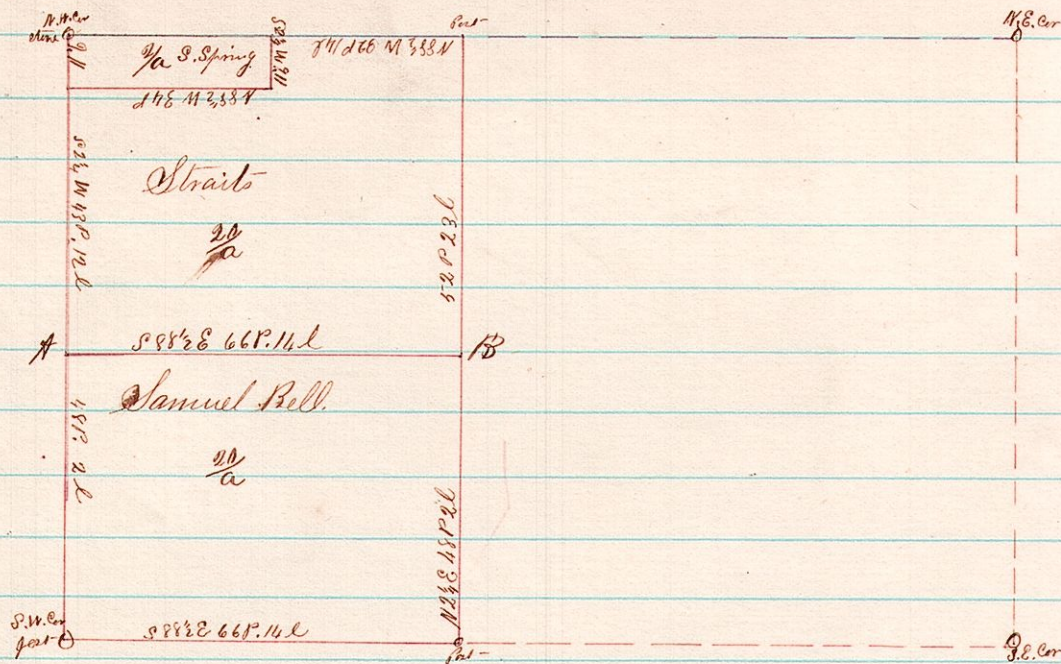 N.W. Cor
stone
Post
N.E. Cor
2/a S. Spring
N88½ W 32P 14l
N88½ W 34P
S2½ W 43P. 12l
Straits
20/a
52P 23l
A
S88½E 66P. 14l
B
Samuel Bell.
20/a
48P. 2l
N2½E 48P 2l
S.W. Cor
post
S88½E 66P. 14l
Post
S.E. Cor